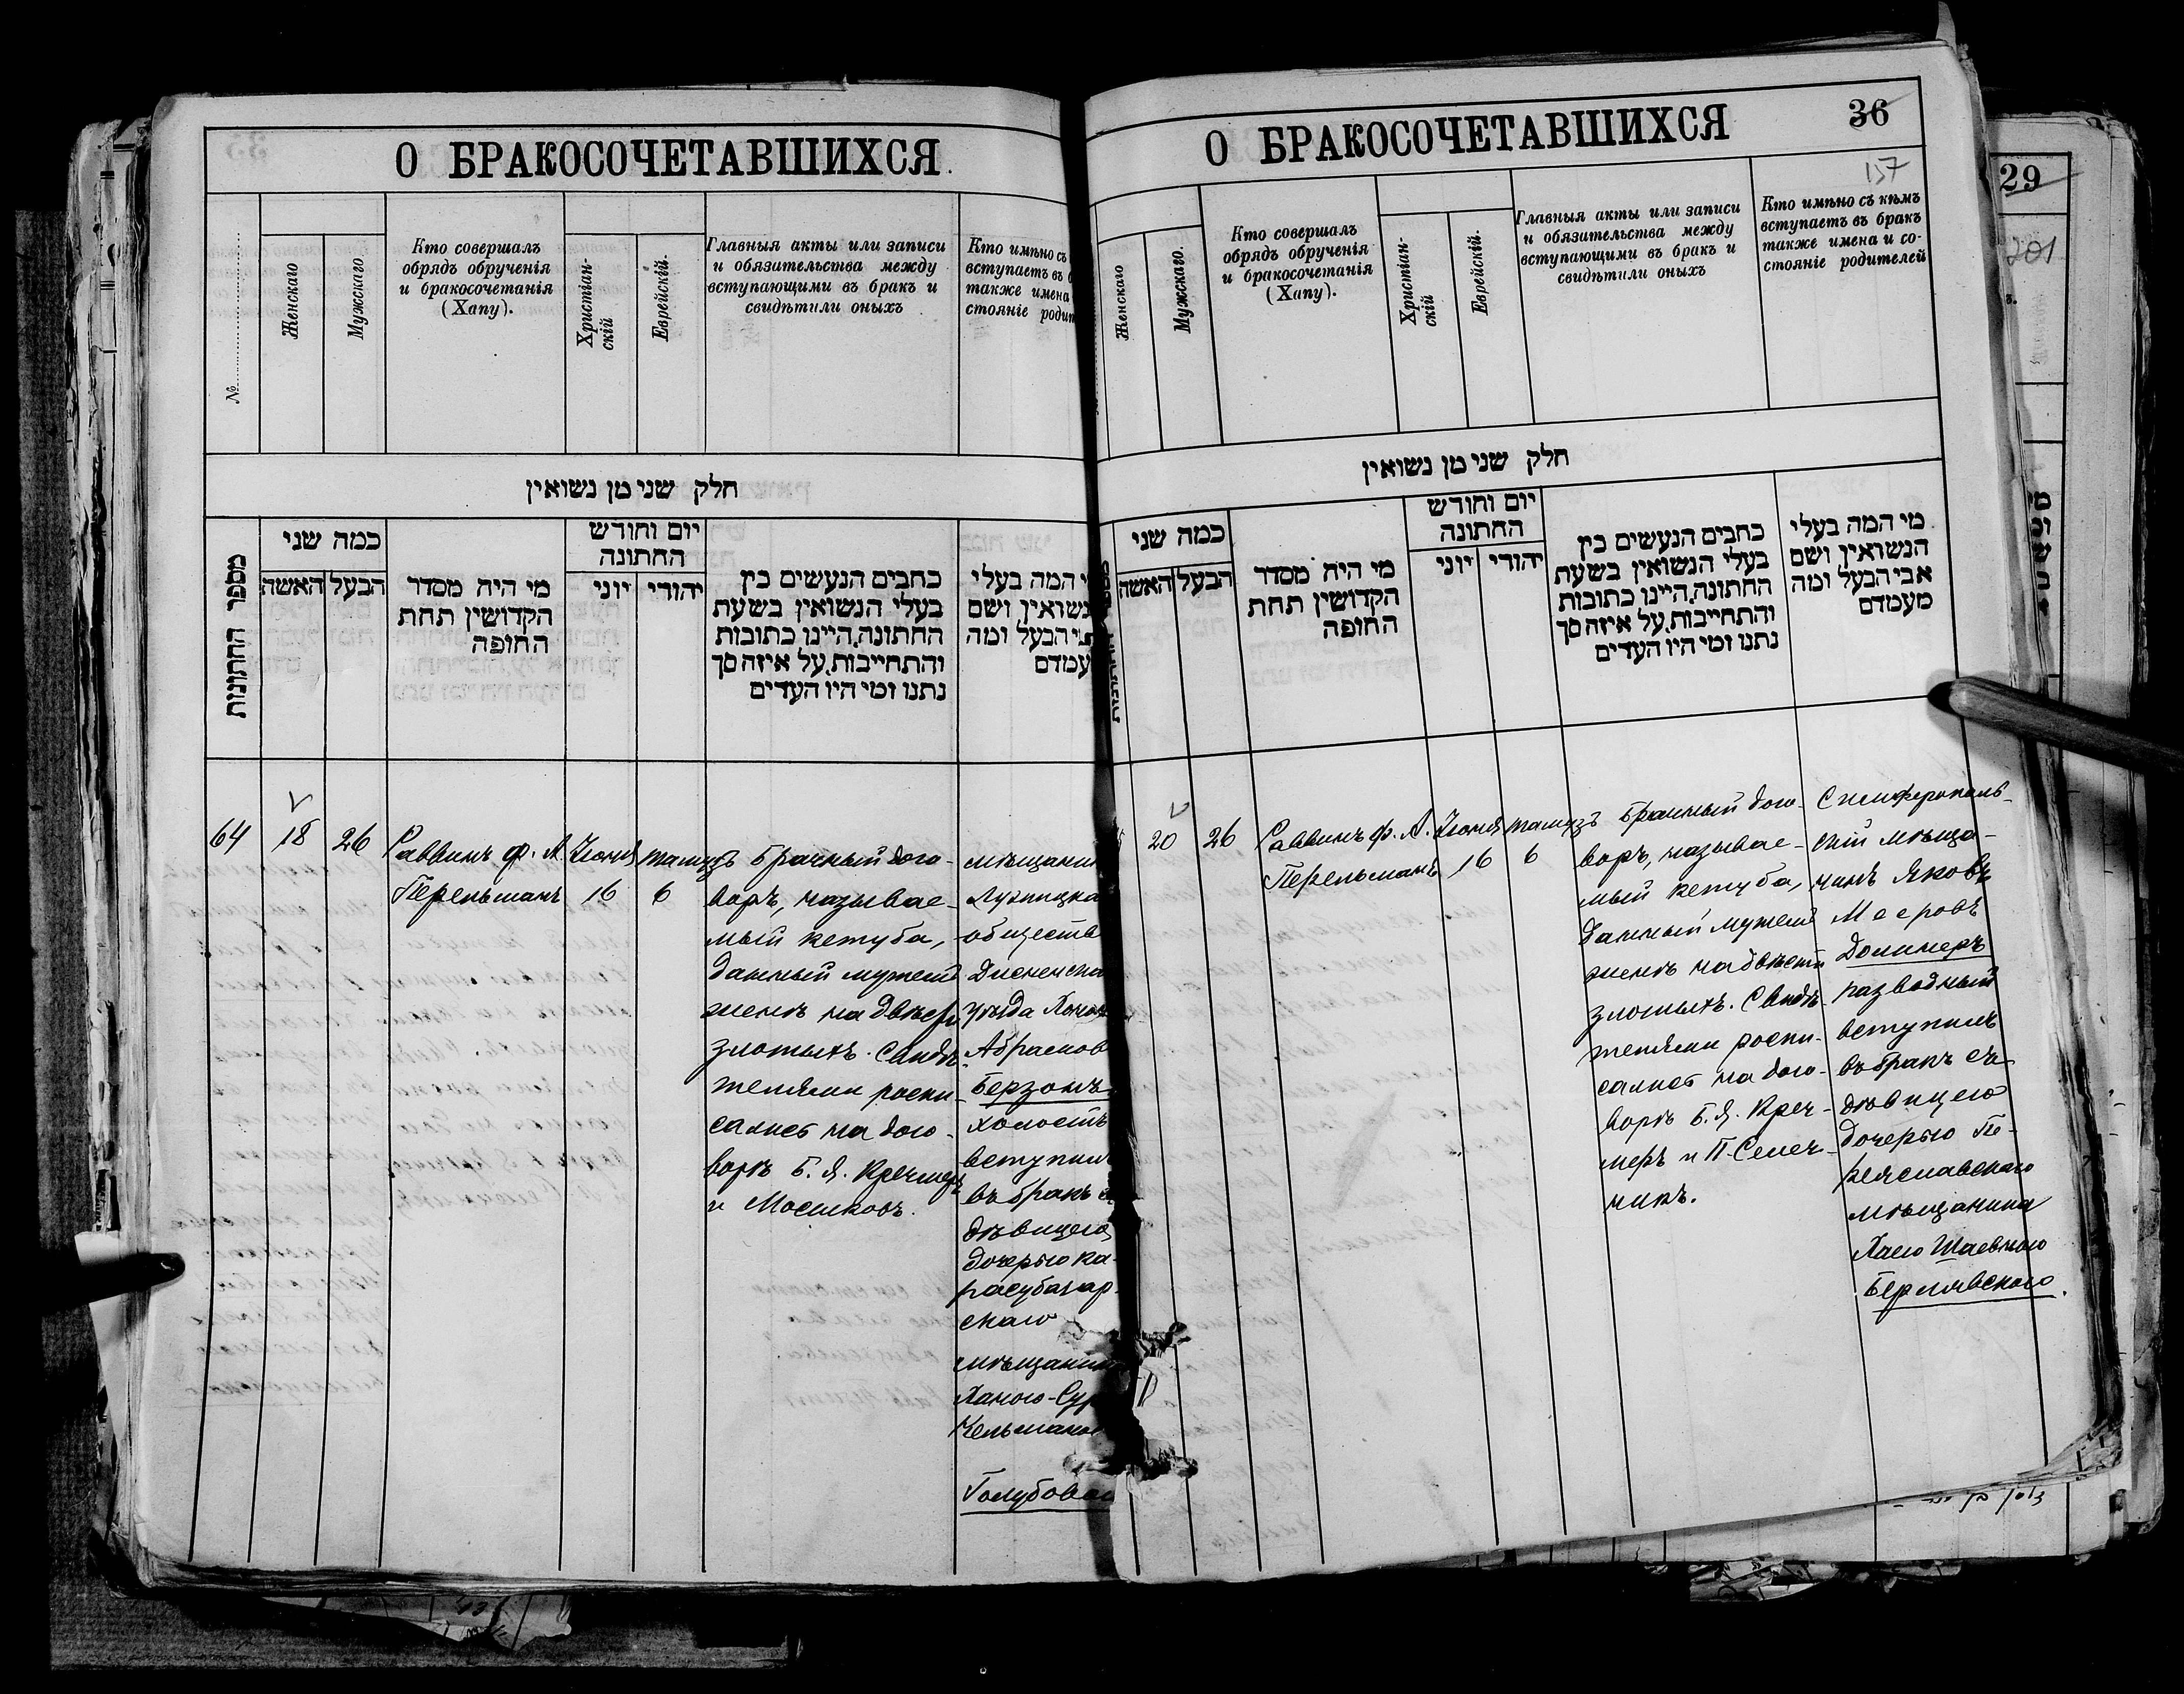 О БРАКОСОЧЕТАВШИХСЯ.
№
Женскаго
Мужскаго
Кто совершалъ
обрядъ обрученія
и бракосочетанія
(Хапу).
Христіан-
скій
Еврейскій.
Главныя акты или записи
и обязательства между
вступающими въ бракъ и
свидѣтили оныхъ
Кто имѣно съ
вступаетъ въ
также имена
стояніе родит
חלק שני מן נשואין
מספר החתונות
כמה שני
האשה
הבעל
מי היה מסדר
הקדושין תחת
החופה
יום וחודש
החתונה
יוני
יהודי
כתבים הנעשים בין
בעלי הנשואין בשעת
החתונה, היינו כתובות
והתחייבות, על איזה סך
נתנו ומי היו העדים
י המה בעלי
נשואין ושם
בי הבעל ומה
עמדם
64
18
26
Раввинъ Ф. А.
Перельманъ
Іюня
16
Тамузъ
6
Брачный дого-
воръ, называе-
мый кетуба,
данный мужемъ
женѣ на двѣсти
злотыхъ. Свидѣ-
телями роспи-
сались на дого-
ворѣ Б. Я. Кречмеръ
и Мосинковъ.
мѣщанин
Лужицка
обществ
Дисненска
уѣзда
Абрамов
Берзонъ
холостъ
вступилъ
въ бракъ съ
дѣвицею
дочерью ка-
расубазар-
скаго
мѣщанин
Ханою-Сур
Кельманов
Голубова
О БРАКОСОЧЕТАВШИХСЯ
36
157
Женскаго
Мужскаго.
Кто совершалъ
обрядъ обрученія
и бракосочетанія
(Хапу).
Христіан-
скій
Еврейскій.
Главныя акты или записи
и обязательства между
вступающими въ бракъ и
свидѣтили оныхъ
Кто имѣно съ кѣмъ
вступаетъ въ бракъ
также имена и со-
стояніе родителей
חלק שני מן נשואין
כמה שני
האשה
הבעל
מי היה מסדר
הקדושין תחת
החופה
יום וחודש
החתונה
יוני
יהודי
כתבים הנעשים בין
בעלי הנשואין בשעת
החתונה, היינו כתובות
והתחייבות, על איזה סך
נתנו ומי היו העדים
מי המה בעלי
הנשואין ושם
אבי הבעל ומה
מעמדם
20
26
Раввинъ Ф. А.
Перельманъ
Іюня
16
Тамузъ
6
Брачный дого-
воръ, называе-
мый кетуба,
данный мужемъ
женѣ на двѣсти
злотыхъ. Свидѣ-
телями роспи-
сались на дого-
ворѣ Б. Я. Креч-
меръ и П. Семеч-
никъ.
Симферополь-
скій мѣща-
нинъ Яковъ
Мееровъ
Долинеръ
разводный
вступилъ
въ бракъ съ
дѣвицею
дочерью Пе-
реяславскаго
мѣщанина
Хаею Шаевною
Берлявскаго.
29
201